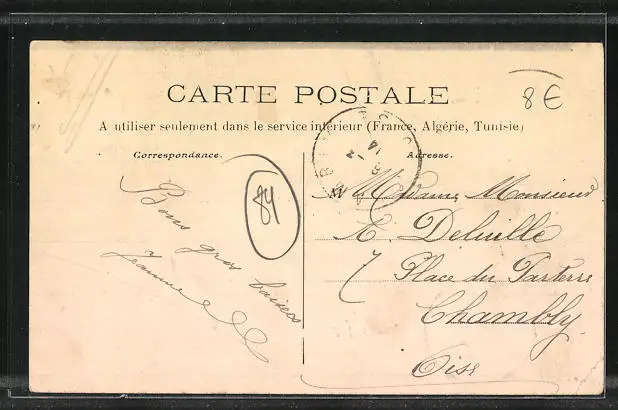 CARTE POSTALE
8€
A utiliser seulement dans le service intérieur (France, Algérie, Tunisie)
Correspondance.
Adresse.
84
Bons gros baisers
Jeanne
Madame Monsieur
A. Deluille
7 Place du Parterre
Chambly
Oise